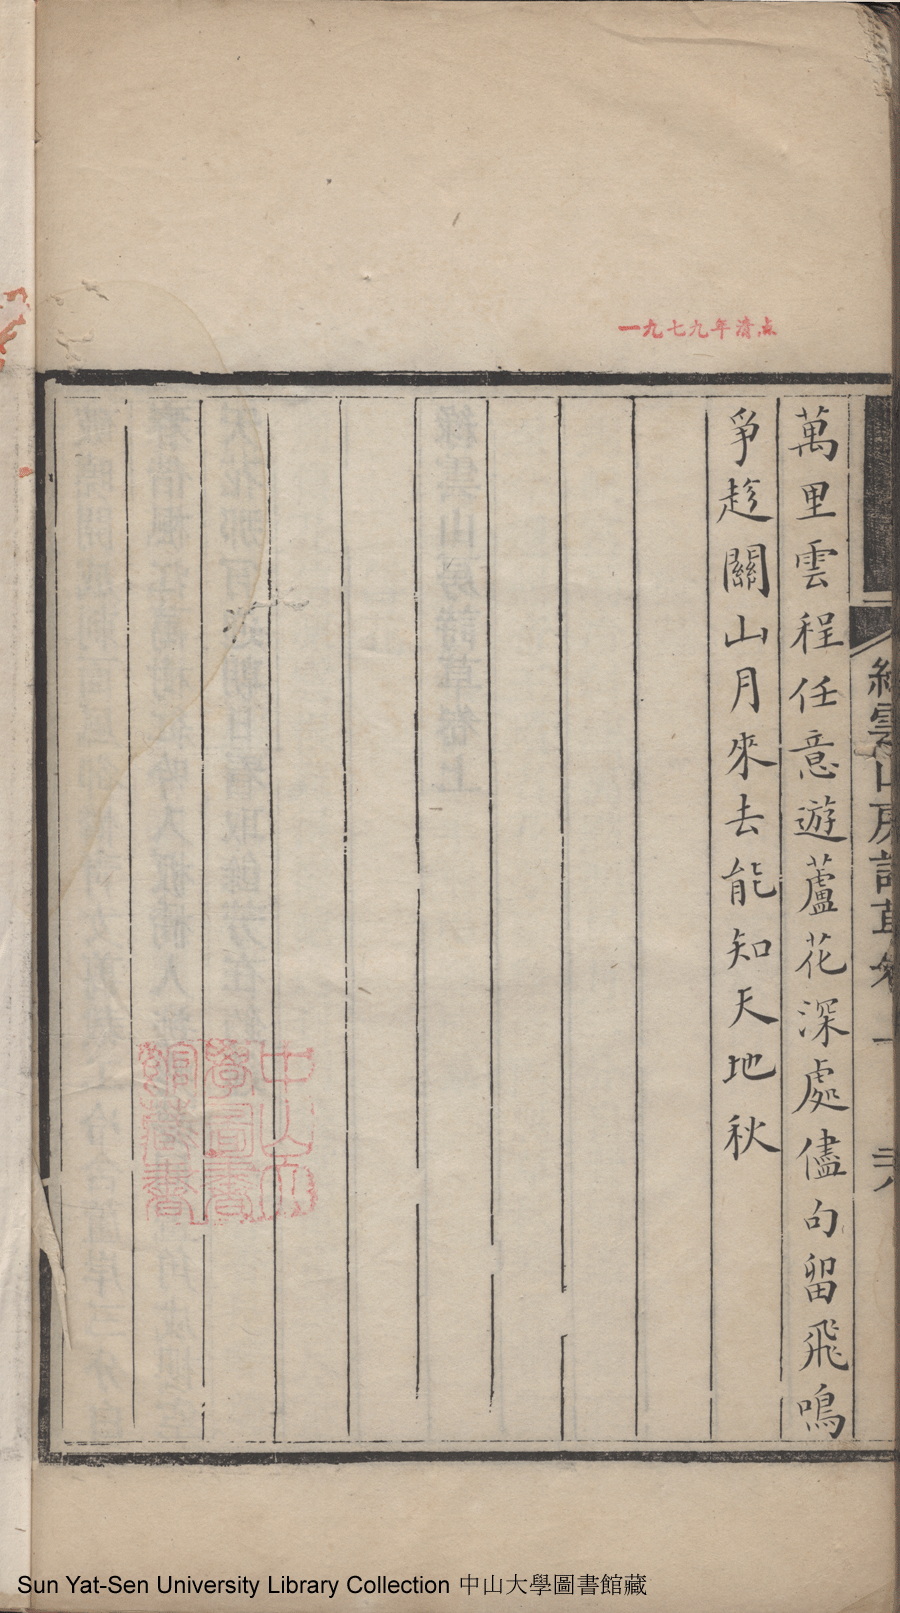 一九七九年清点
萬里雲程任意遊蘆花深處儘句留飛鳴
爭趁關山月來去能知天地秋
中山大學圖書館藏書
Sun Yat-Sen University Library Collection 中山大學圖書館藏